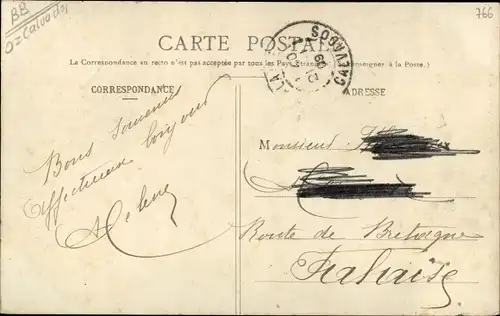 BB
766
CARTE POSTALE
CALVADOS
09
La Correspondance au recto n'est pas acceptée par tous les Pays Étrangers (
enseigner à la Poste.)
CORRESPONDANCE
ADRESSE
Bons Souvenirs
affectueux bonjour
Monsieur
Route de Bretagne
Falaise